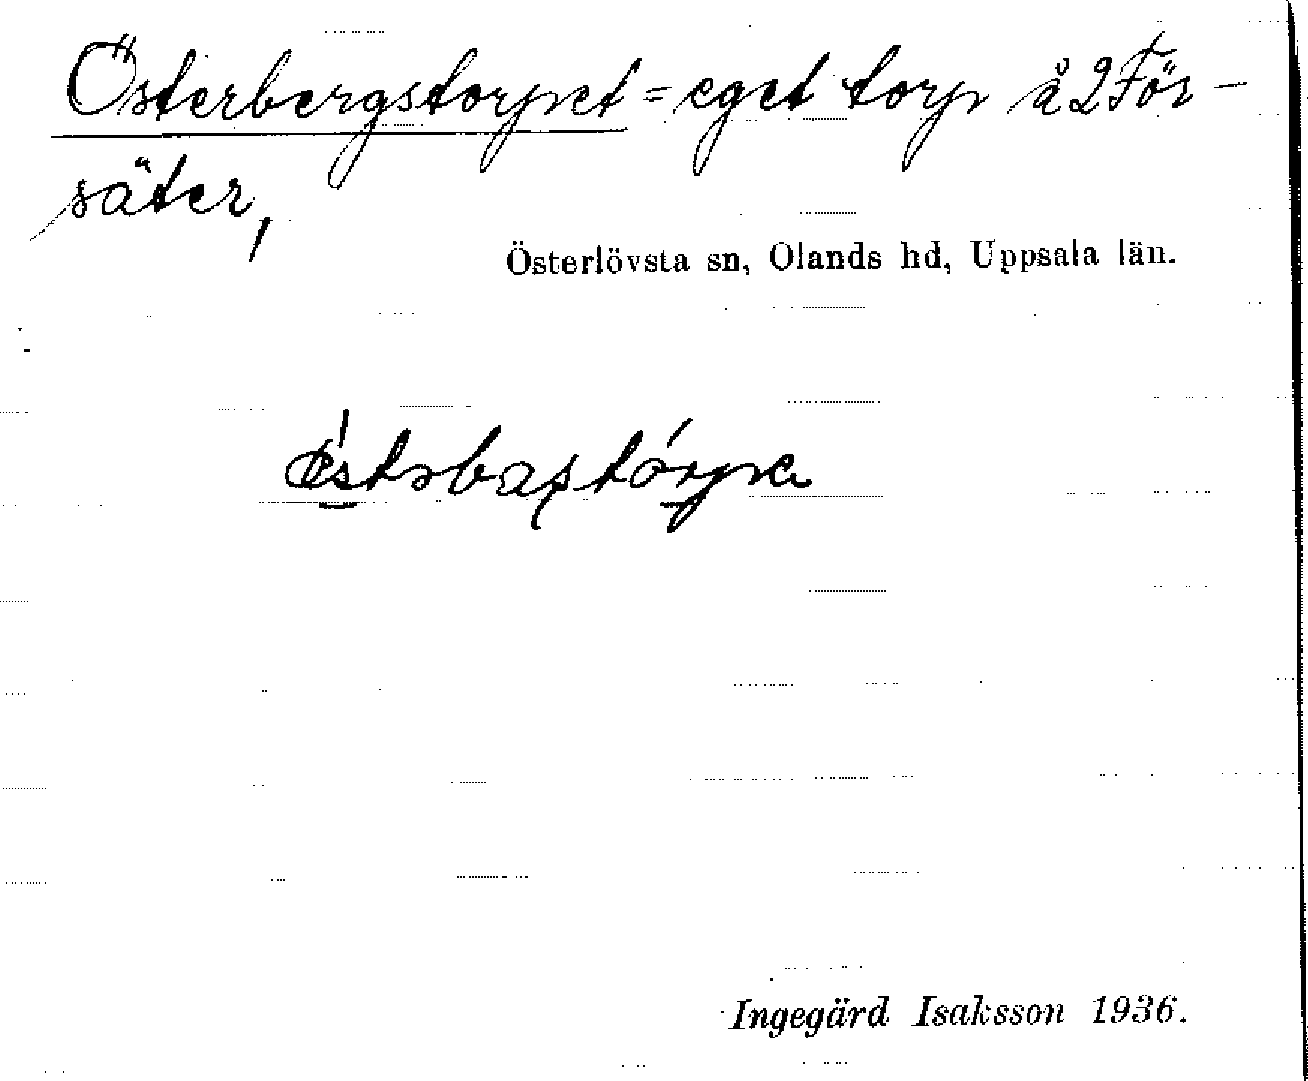 Österbergstorpet = eget torp å 2 För-
säter,
Österlövsta sn, Olands hd, Uppsala län.
Ingegärd Isaksson 1936.